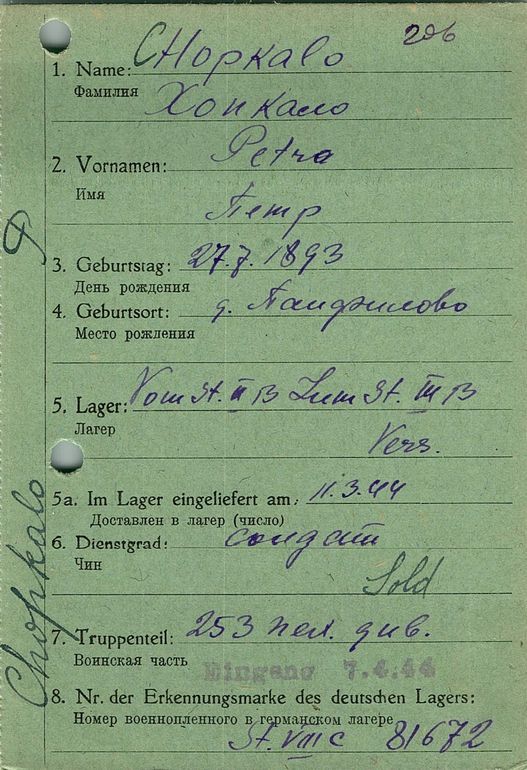 206
1. Name: CHopkalo
Фамилия
Хопкало
2. Vornamen: Petra
Имя
Петр
3. Geburtstag: 27.7.1893
День рождения
4. Geburtsort: д. Панфилово
Место рождения
5. Lager: Vom St. II B Zum St. III B
Лагер
Vers.
5a. Im Lager eingeliefert am: 11.3.44
Доставлен в лагер (число)
6. Dienstgrad: солдат
Чин
Sold
7. Truppenteil: 253 пех. див.
Воинская часть
Eingang 7.4.44
8. Nr. der Erkennungsmarke des deutschen Lagers:
Номер военнопленного в германском лагере
St. VIII C 81672
Chopkalo